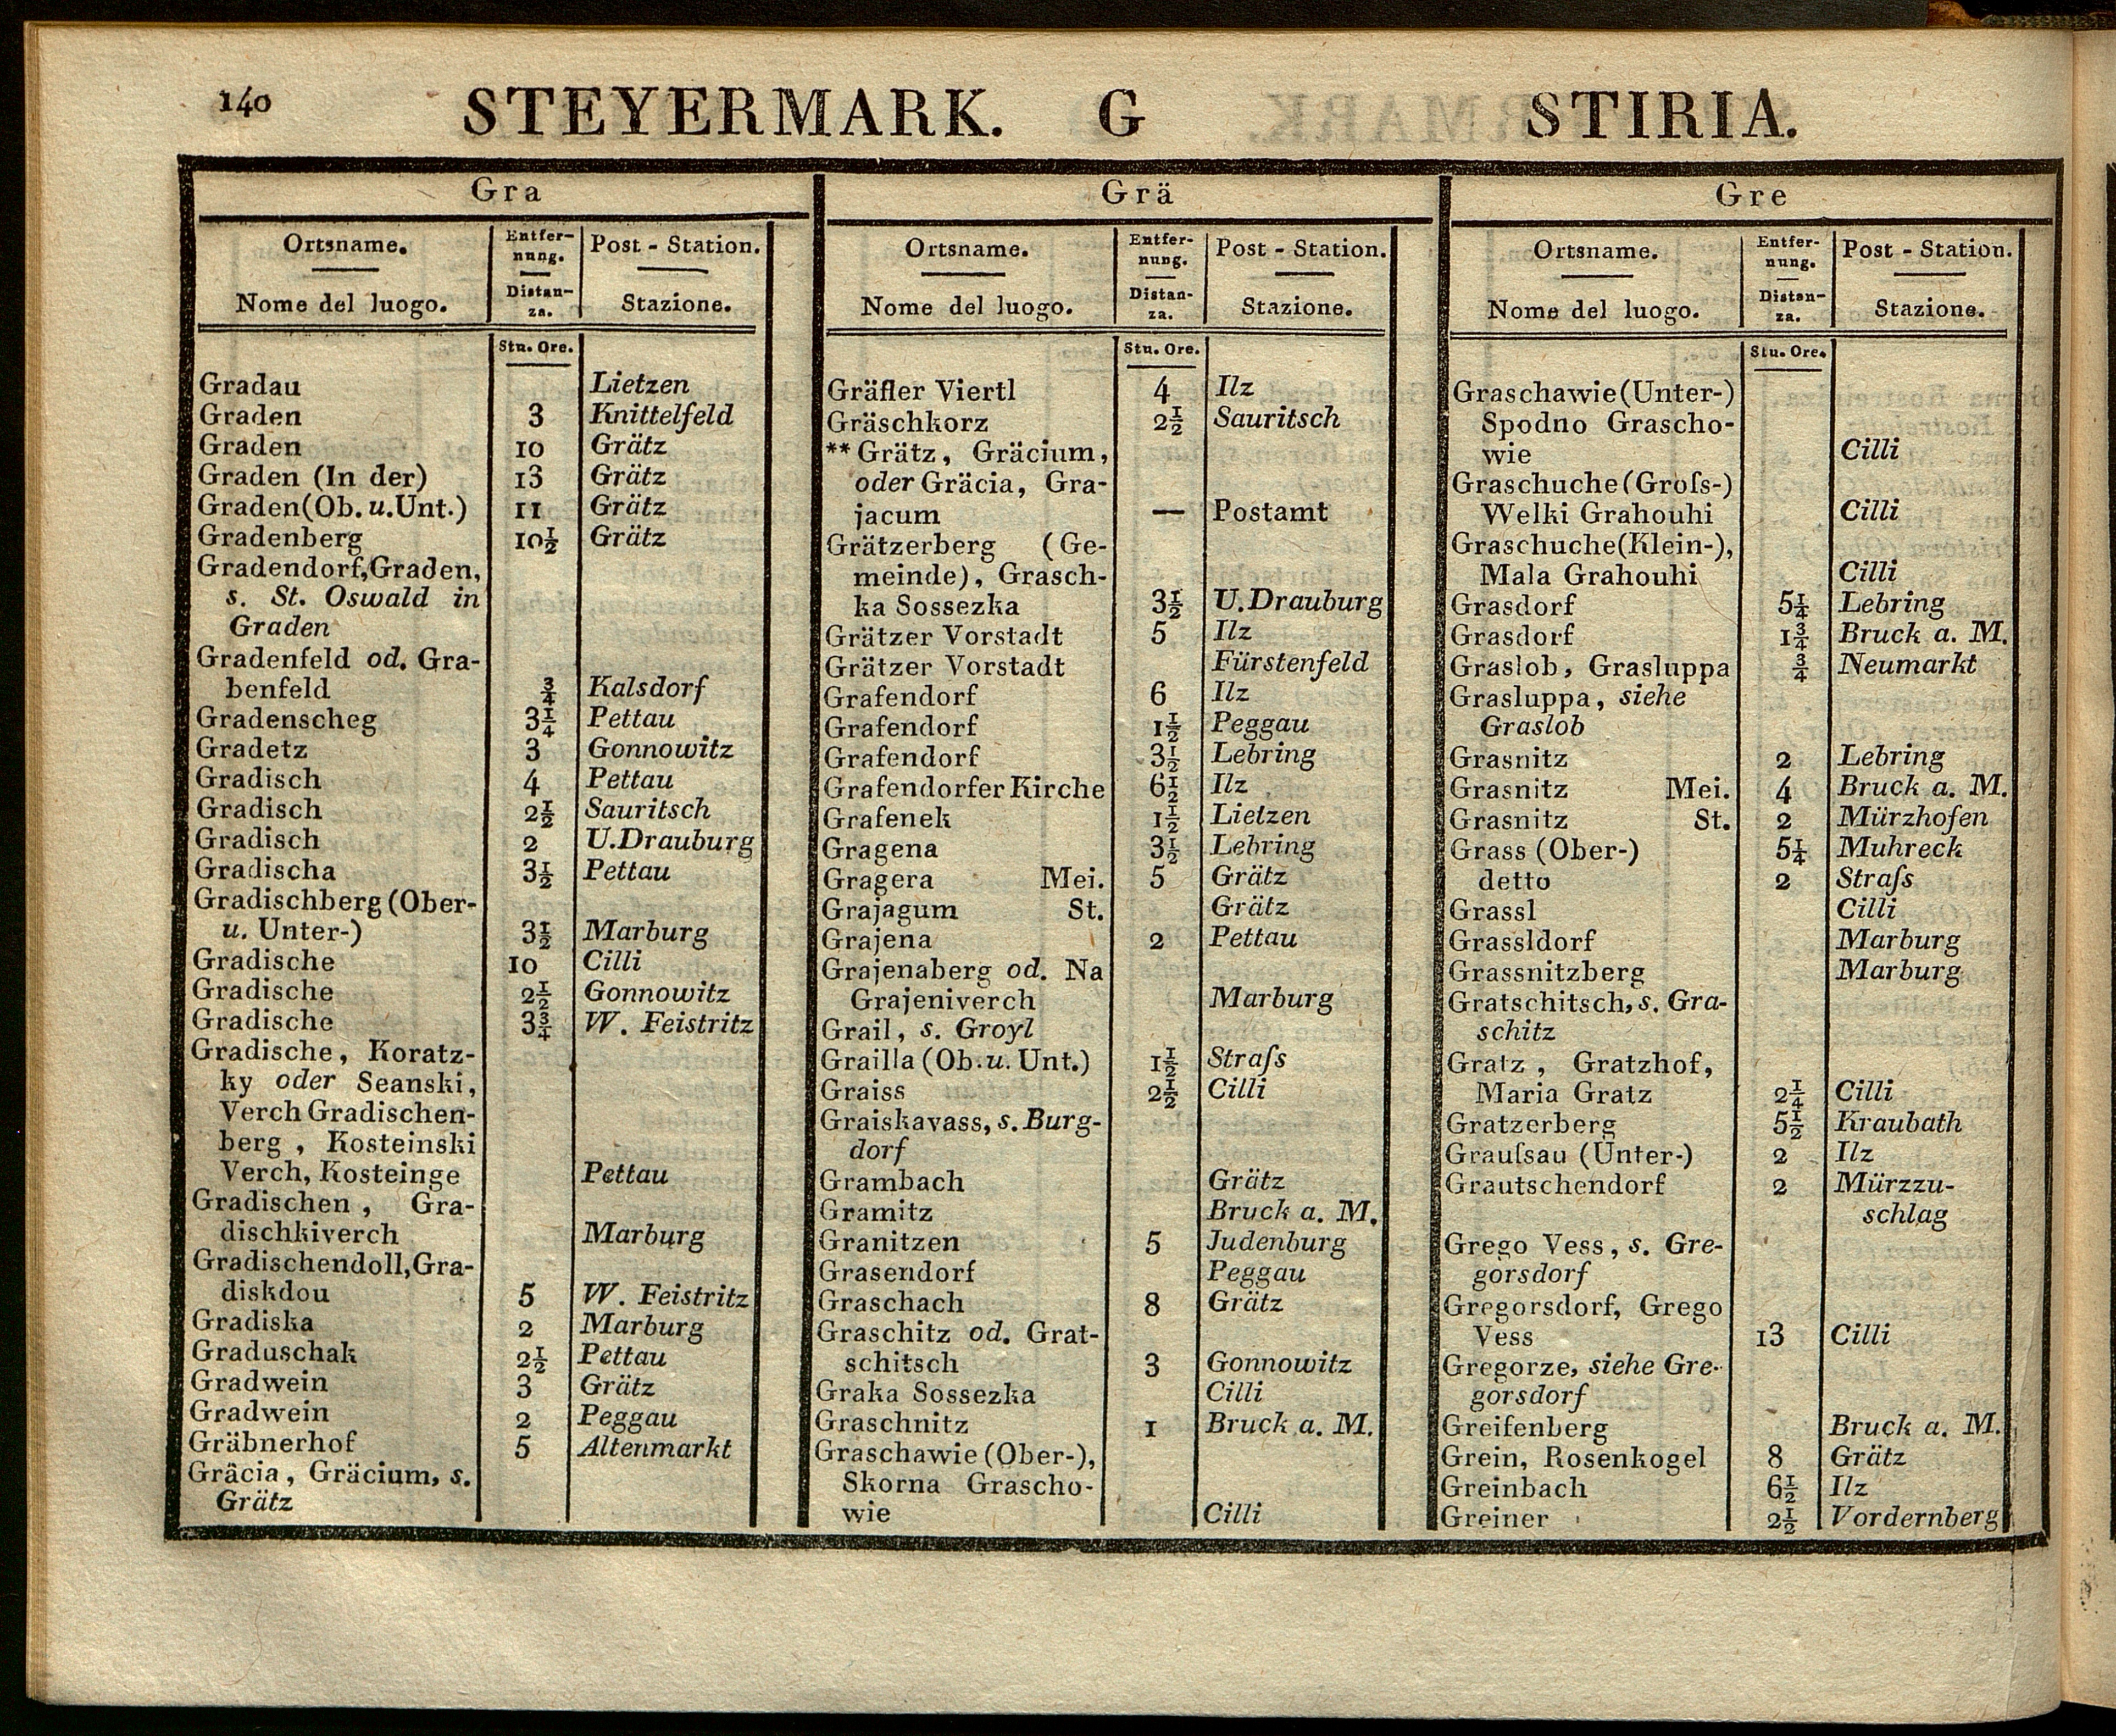 140
STEYERMARK. G STIRIA.
Gra
Ortsname. Entfer- Post - Station.
nung.
Nome del luogo. Distan- Stazione.
za.
Stu. Ore.
Gradau Lietzen
Graden 3 Knittelfeld
Graden 10 Grätz
Graden (In der) 13 Grätz
Graden(Ob. u. Unt.) 11 Grätz
Gradenberg 10½ Grätz
Gradendorf, Graden,
s. St. Oswald in
Graden
Gradenfeld od. Gra-
benfeld ¾ Kalsdorf
Gradenscheg 3¼ Pettau
Gradetz 3 Gonnowitz
Gradisch 4 Pettau
Gradisch 2½ Sauritsch
Gradisch 2 U.Drauburg
Gradischa 3½ Pettau
Gradischberg (Ober-
u. Unter-) 3½ Marburg
Gradische 10 Cilli
Gradische 2½ Gonnowitz
Gradische 3¾ W. Feistritz
Gradische, Koratz-
ky oder Seanski,
Verch Gradischen-
berg , Kosteinski
Verch, Kosteinge Pettau
Gradischen , Gra-
dischkiverch Marburg
Gradischendoll, Gra-
diskdou 5 W. Feistritz
Gradiska 2 Marburg
Graduschak 2½ Pettau
Gradwein 3 Grätz
Gradwein 2 Peggau
Gräbnerhof 5 Altenmarkt
Gräcia, Gräcium, s.
Grätz
Grä
Ortsname. Entfer- Post - Station.
nung.
Nome del luogo. Distan- Stazione.
za.
Stu. Ore.
Gräfler Viertl 4 Ilz
Gräschkorz 2½ Sauritsch
** Grätz, Gräcium,
oder Gräcia, Gra-
jacum — Postamt
Grätzerberg (Ge-
meinde), Grasch-
ka Sossezka 3½ U.Drauburg
Grätzer Vorstadt 5 Ilz
Grätzer Vorstadt Fürstenfeld
Grafendorf 6 Ilz
Grafendorf 1½ Peggau
Grafendorf 3½ Lebring
Grafendorfer Kirche 6½ Ilz
Grafenek 1½ Lietzen
Gragena 3½ Lebring
Gragera Mei. 5 Grätz
Grajagum St. Grätz
Grajena 2 Pettau
Grajenaberg od. Na
Grajeniverch Marburg
Grail, s. Groyl
Grailla (Ob. u. Unt.) 1½ Straſs
Graiss 2½ Cilli
Graiskavass, s. Burg-
dorf
Grambach Grätz
Gramitz Bruck a. M.
Granitzen 5 Judenburg
Grasendorf Peggau
Graschach 8 Grätz
Graschitz od. Grat-
schitsch 3 Gonnowitz
Graka Sossezka Cilli
Graschnitz 1 Bruck a. M.
Graschawie (Ober-),
Skorna Grascho-
wie Cilli
Gre
Ortsname. Entfer- Post - Station.
nung.
Nome del luogo. Distan- Stazione.
za.
Stu. Ore.
Graschawie (Unter-)
Spodno Grascho-
wie Cilli
Graschuche (Groſs-)
Welki Grahouhi Cilli
Graschuche(Klein-),
Mala Grahouhi Cilli
Grasdorf 5¼ Lebring
Grasdorf 1¾ Bruck a. M.
Graslob, Grasluppa ¾ Neumarkt
Grasluppa, siehe
Graslob
Grasnitz 2 Lebring
Grasnitz Mei. 4 Bruck a. M.
Grasnitz St. 2 Mürzhofen
Grass (Ober-) 5¼ Muhreck
detto 2 Straſs
Grassl Cilli
Grassldorf Marburg
Grassnitzberg Marburg
Gratschitsch, s. Gra-
schitz
Gratz , Gratzhof,
Maria Gratz 2¼ Cilli
Gratzerberg 5½ Kraubath
Grauſsau (Unter-) 2 Ilz
Grautschendorf 2 Mürzzu-
schlag
Grego Vess, s. Gre-
gorsdorf
Gregorsdorf, Grego
Vess 13 Cilli
Gregorze, siehe Gre-
gorsdorf
Greifenberg Bruck a. M.
Grein, Rosenkogel 8 Grätz
Greinbach 6½ Ilz
Greiner 2½ Vordernberg